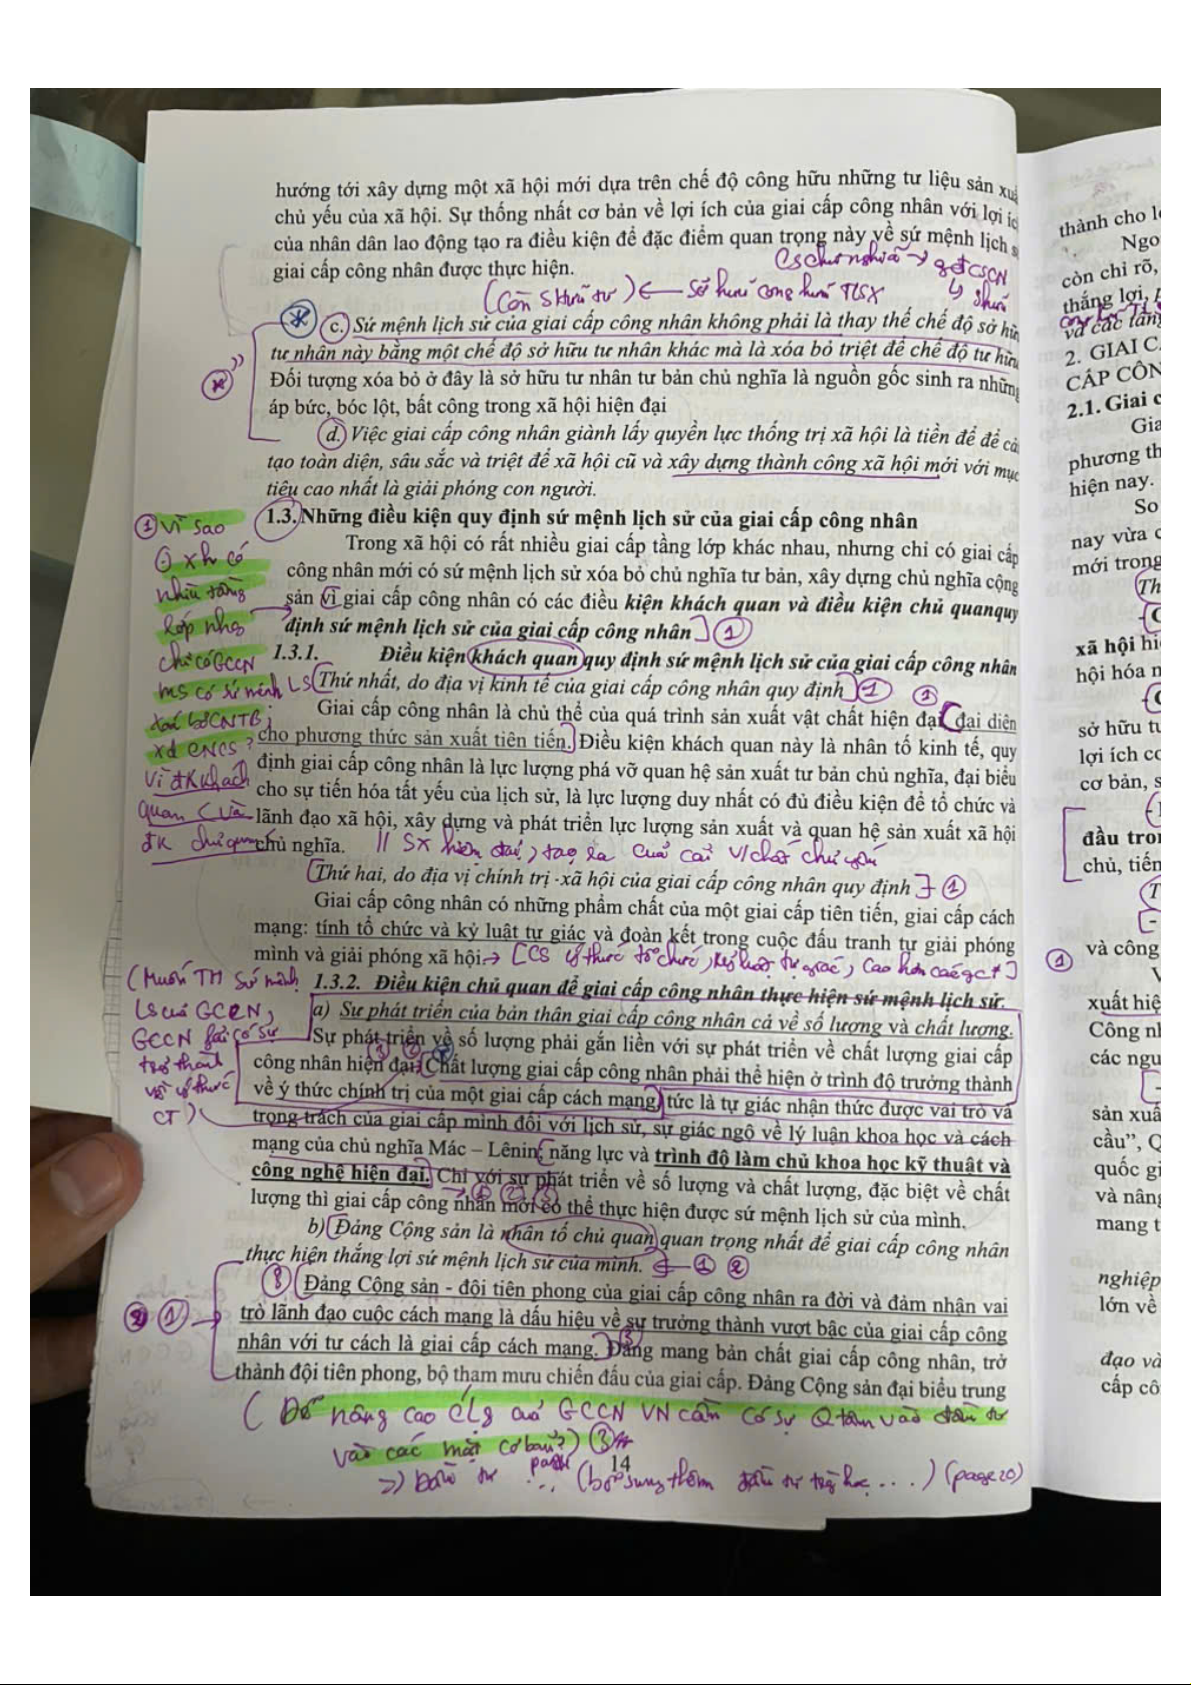 hướng tới xây dựng một xã hội mới dựa trên chế độ công hữu những tư liệu sản xuấ
chủ yếu của xã hội. Sự thống nhất cơ bản về lợi ích của giai cấp công nhân với lợi íc
của nhân dân lao động tạo ra điều kiện để đặc điểm quan trọng này về sứ mệnh lịch s
giai cấp công nhân được thực hiện.
c. Sứ mệnh lịch sử của giai cấp công nhân không phải là thay thế chế độ sở hữu
tư nhân này bằng một chế độ sở hữu tư nhân khác mà là xóa bỏ triệt để chế độ tư hữu
Đối tượng xóa bỏ ở đây là sở hữu tư nhân tư bản chủ nghĩa là nguồn gốc sinh ra những
áp bức, bóc lột, bất công trong xã hội hiện đại
d. Việc giai cấp công nhân giành lấy quyền lực thống trị xã hội là tiền đề để cả
tạo toàn diện, sâu sắc và triệt để xã hội cũ và xây dựng thành công xã hội mới với mục
tiêu cao nhất là giải phóng con người.
1.3. Những điều kiện quy định sứ mệnh lịch sử của giai cấp công nhân
Trong xã hội có rất nhiều giai cấp tầng lớp khác nhau, nhưng chỉ có giai cấp
công nhân mới có sứ mệnh lịch sử xóa bỏ chủ nghĩa tư bản, xây dựng chủ nghĩa cộng
sản vì giai cấp công nhân có các điều kiện khách quan và điều kiện chủ quanquy
định sứ mệnh lịch sử của giai cấp công nhân 1
1.3.1. Điều kiện khách quan quy định sứ mệnh lịch sử của giai cấp công nhân
Thứ nhất, do địa vị kinh tế của giai cấp công nhân quy định 1
Giai cấp công nhân là chủ thể của quá trình sản xuất vật chất hiện đại, đại diện
cho phương thức sản xuất tiên tiến. Điều kiện khách quan này là nhân tố kinh tế, quy
định giai cấp công nhân là lực lượng phá vỡ quan hệ sản xuất tư bản chủ nghĩa, đại biểu
cho sự tiến hóa tất yếu của lịch sử, là lực lượng duy nhất có đủ điều kiện để tổ chức và
lãnh đạo xã hội, xây dựng và phát triển lực lượng sản xuất và quan hệ sản xuất xã hội
chủ nghĩa.
Thứ hai, do địa vị chính trị -xã hội của giai cấp công nhân quy định
Giai cấp công nhân có những phẩm chất của một giai cấp tiên tiến, giai cấp cách
mạng: tính tổ chức và kỷ luật tự giác và đoàn kết trong cuộc đấu tranh tự giải phóng
mình và giải phóng xã hội
1.3.2. Điều kiện chủ quan để giai cấp công nhân thực hiện sứ mệnh lịch sử.
a) Sự phát triển của bản thân giai cấp công nhân cả về số lượng và chất lượng.
Sự phát triển về số lượng phải gắn liền với sự phát triển về chất lượng giai cấp
công nhân hiện đại. Chất lượng giai cấp công nhân phải thể hiện ở trình độ trưởng thành
về ý thức chính trị của một giai cấp cách mạng, tức là tự giác nhận thức được vai trò và
trọng trách của giai cấp mình đối với lịch sử, sự giác ngộ về lý luận khoa học và cách
mạng của chủ nghĩa Mác – Lênin; năng lực và trình độ làm chủ khoa học kỹ thuật và
công nghệ hiện đại. Chỉ với sự phát triển về số lượng và chất lượng, đặc biệt về chất
lượng thì giai cấp công nhân mới có thể thực hiện được sứ mệnh lịch sử của mình.
b) Đảng Cộng sản là nhân tố chủ quan quan trọng nhất để giai cấp công nhân
thực hiện thắng lợi sứ mệnh lịch sử của mình. 1 2
Đảng Cộng sản - đội tiên phong của giai cấp công nhân ra đời và đảm nhận vai
trò lãnh đạo cuộc cách mạng là dấu hiệu về sự trưởng thành vượt bậc của giai cấp công
nhân với tư cách là giai cấp cách mạng. Đảng mang bản chất giai cấp công nhân, trở
thành đội tiên phong, bộ tham mưu chiến đấu của giai cấp. Đảng Cộng sản đại biểu trung
14
(page 20)
1 Vì sao
xh có
nhiều tầng
lớp nhg
chỉ có GCCN
ms có sứ mệnh LS
xoá bỏ CNTB,
xd CNCS?
Vì đk khách
quan và
đk chủ quan
(Muốn TH sứ mệnh
LS của GCCN,
GCCN phải có sự
trg thành
về ý thức
CT)
thành cho l
Ngo
còn chỉ rõ,
thắng lợi,
và các tầng
2. GIAI C
CẤP CÔN
2.1. Giai c
Gia
phương th
hiện nay.
So
nay vừa c
mới trong
Th
xã hội hi
hội hóa n
sở hữu tư
lợi ích cơ
cơ bản, s
đầu tro
chủ, tiến
T
và công
V
xuất hiệ
Công nh
các ngu
sản xuấ
cầu”, Q
quốc gi
và nâng
mang t
nghiệp
lớn về
đạo và
cấp cô